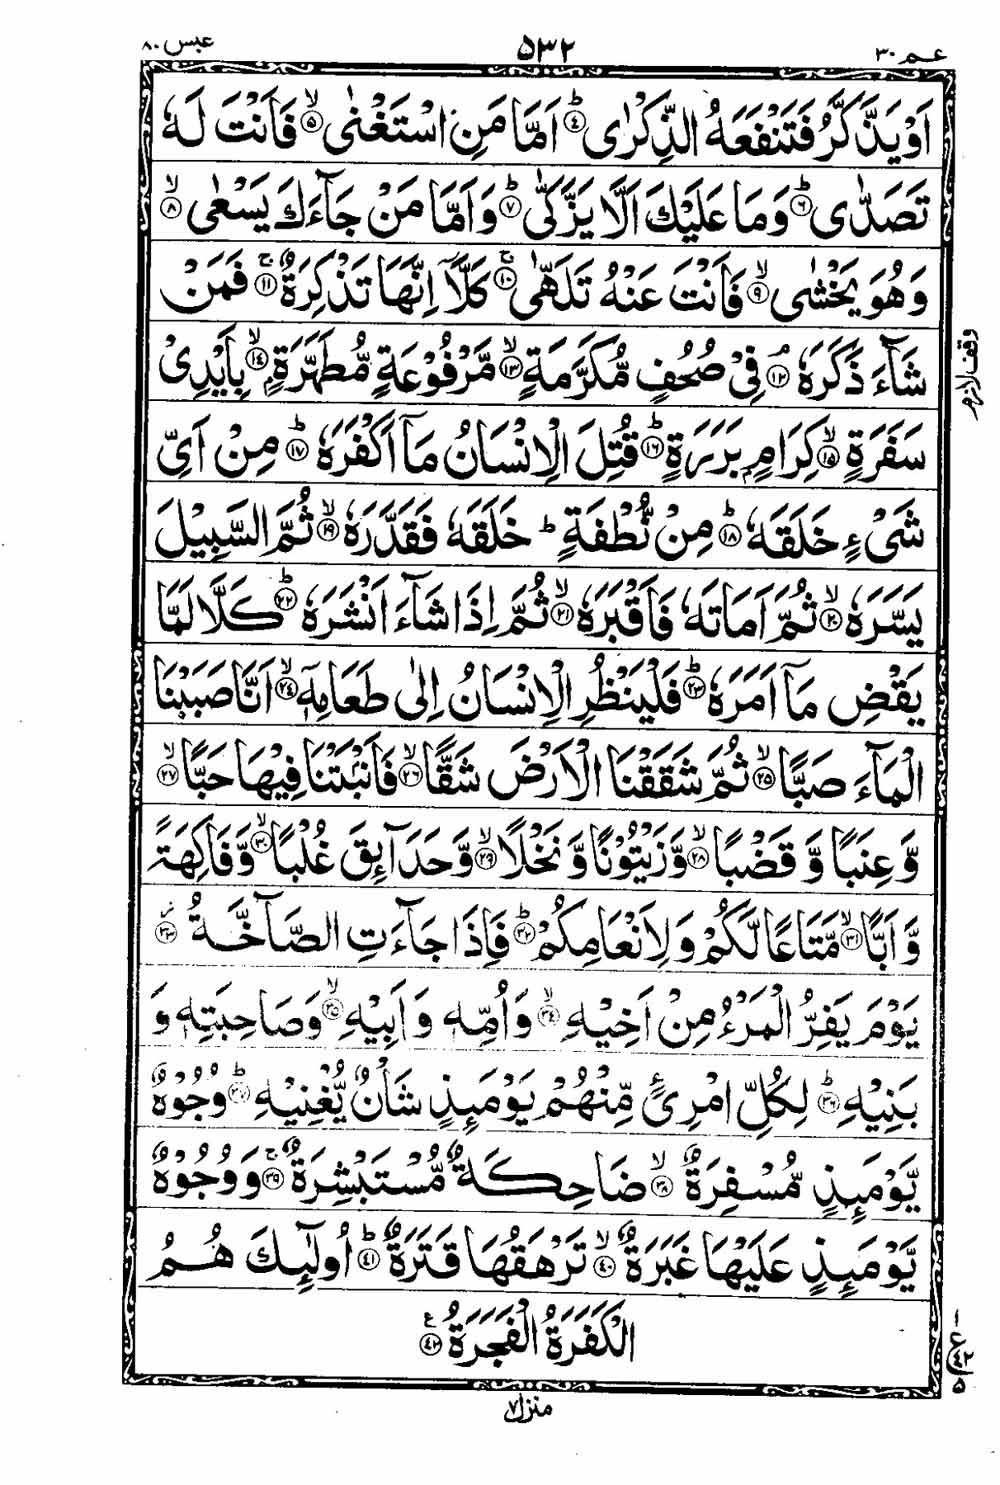 عبس ٨٠
٥٣٢
عم ٣٠
اَوْ يَذَّكَّرُ فَتَنْفَعَهُ الذِّكْرٰى ؕ﴿۴﴾ اَمَّا مَنِ اسْتَغْنٰى ۙ﴿۵﴾ فَاَنْتَ لَهٗ
تَصَدّٰى ؕ﴿۶﴾ وَمَا عَلَيْكَ اَلَّا يَزَّكّٰى ؕ﴿۷﴾ وَاَمَّا مَنْ جَآءَكَ يَسْعٰى ۙ﴿۸﴾
وَهُوَ يَخْشٰى ۙ﴿۹﴾ فَاَنْتَ عَنْهُ تَلَهّٰى ۚ﴿۱۰﴾ كَلَّاۤ اِنَّهَا تَذْكِرَةٌ ۚ﴿۱۱﴾ فَمَنْ
شَآءَ ذَكَرَهٗ ۘ﴿۱۲﴾ فِىْ صُحُفٍ مُّكَرَّمَةٍ ۙ﴿۱۳﴾ مَّرْفُوْعَةٍ مُّطَهَّرَةٍۭ ۙ﴿۱۴﴾ بِاَيْدِىْ
وقف لازم
سَفَرَةٍ ۙ﴿۱۵﴾ كِرَامٍۭ بَرَرَةٍ ؕ﴿۱۶﴾ قُتِلَ الْاِنْسَانُ مَاۤ اَكْفَرَهٗ ؕ﴿۱۷﴾ مِنْ اَىِّ
شَىْءٍ خَلَقَهٗ ؕ﴿۱۸﴾ مِنْ نُّطْفَةٍ ؕ خَلَقَهٗ فَقَدَّرَهٗ ۙ﴿۱۹﴾ ثُمَّ السَّبِيْلَ
يَسَّرَهٗ ۙ﴿۲۰﴾ ثُمَّ اَمَاتَهٗ فَاَقْبَرَهٗ ۙ﴿۲۱﴾ ثُمَّ اِذَا شَآءَ اَنْشَرَهٗ ؕ﴿۲۲﴾ كَلَّا لَمَّا
يَقْضِ مَاۤ اَمَرَهٗ ؕ﴿۲۳﴾ فَلْيَنْظُرِ الْاِنْسَانُ اِلٰى طَعَامِهٖۤ ۙ﴿۲۴﴾ اَنَّا صَبَبْنَا
الْمَآءَ صَبًّا ۙ﴿۲۵﴾ ثُمَّ شَقَقْنَا الْاَرْضَ شَقًّا ۙ﴿۲۶﴾ فَاَنْۢبَتْنَا فِيْهَا حَبًّا ۙ﴿۲۷﴾
وَّعِنَبًا وَّقَضْبًا ۙ﴿۲۸﴾ وَّزَيْتُوْنًا وَّنَخْلًا ۙ﴿۲۹﴾ وَّحَدَآئِقَ غُلْبًا ۙ﴿۳۰﴾ وَّفَاكِهَةً
وَّاَبًّا ۙ﴿۳۱﴾ مَّتَاعًا لَّكُمْ وَلِاَنْعَامِكُمْ ؕ﴿۳۲﴾ فَاِذَا جَآءَتِ الصَّآخَّةُ ۫﴿۳۳﴾
يَوْمَ يَفِرُّ الْمَرْءُ مِنْ اَخِيْهِ ۙ﴿۳۴﴾ وَاُمِّهٖ وَاَبِيْهِ ۙ﴿۳۵﴾ وَصَاحِبَتِهٖ وَ
بَنِيْهِ ؕ﴿۳۶﴾ لِكُلِّ امْرِئٍ مِّنْهُمْ يَوْمَئِذٍ شَاْنٌ يُّغْنِيْهِ ؕ﴿۳۷﴾ وُجُوْهٌ
يَّوْمَئِذٍ مُّسْفِرَةٌ ۙ﴿۳۸﴾ ضَاحِكَةٌ مُّسْتَبْشِرَةٌ ۚ﴿۳۹﴾ وَوُجُوْهٌ
يَّوْمَئِذٍ عَلَيْهَا غَبَرَةٌ ۙ﴿۴۰﴾ تَرْهَقُهَا قَتَرَةٌ ؕ﴿۴۱﴾ اُولٰٓئِكَ هُمُ
الْكَفَرَةُ الْفَجَرَةُ ﴿۴۲﴾ ع
ع ١ ٤٢ ٥
منزل ٧